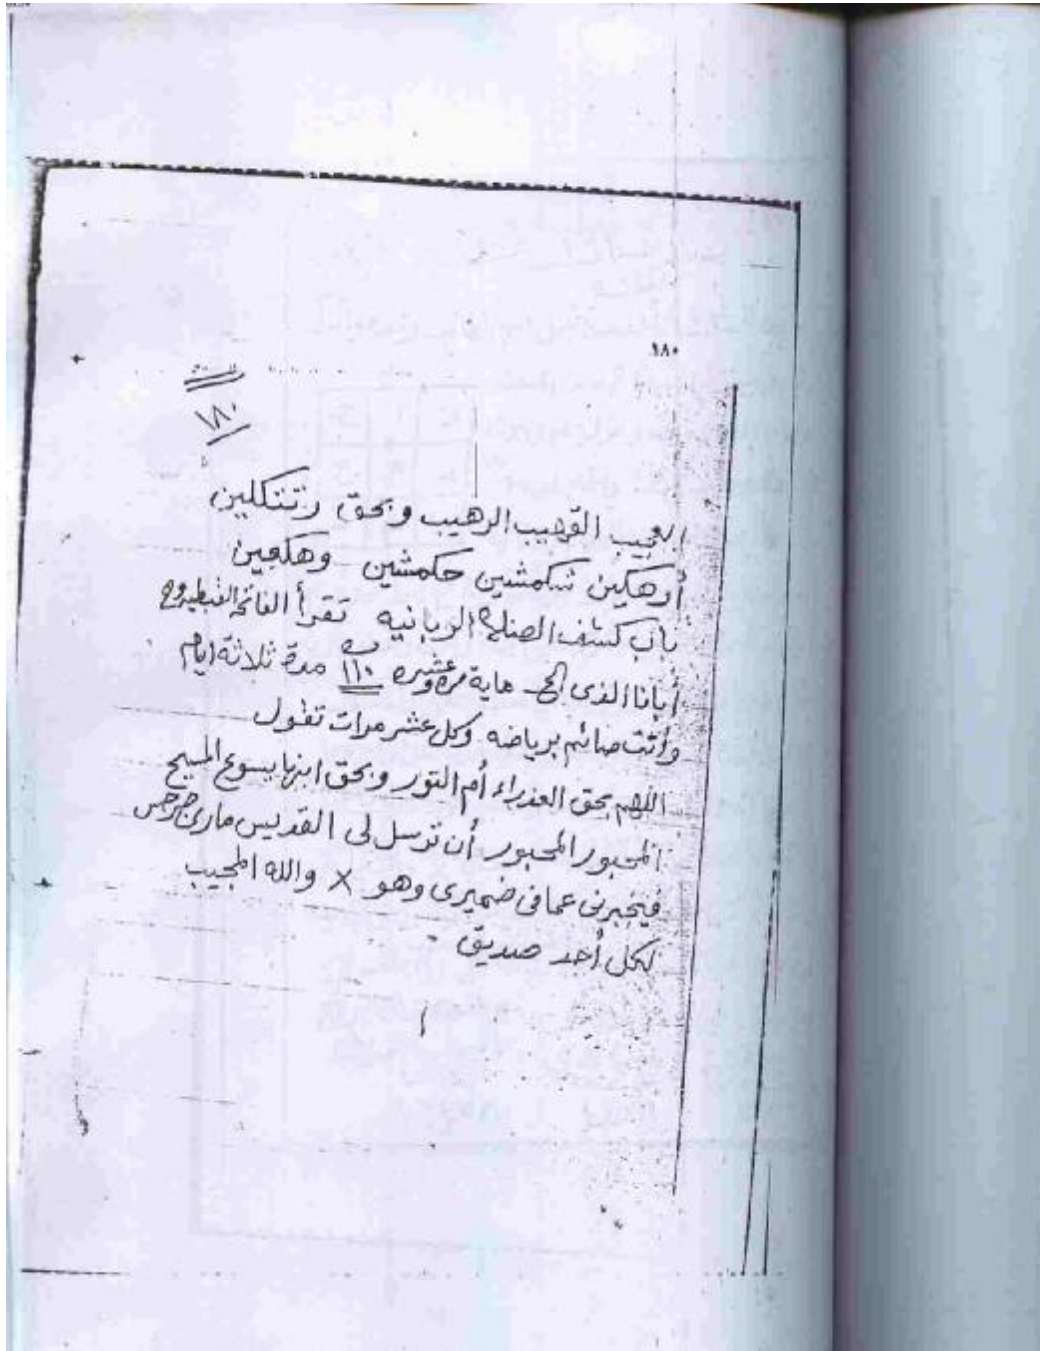 ١٨٠
١٨٠
العجيب القريب الرهيب وبحق زنتكلين
أرهكين شكمشين حكمشين وهكجين
باب كشف الصلاة الربانيه تقرأ الفاتحة القبطيه وهى
أبانا الذى الخ ماية مره وعشره ١١٠ مرة مدة ثلاثة ايام
وانت صائم برياضه وكل عشر مرات تقول
اللهم بحق العذراء أم النور وبحق ابنها يسوع المسيح
المحبور المحبور أن ترسل لى القديس مارى جرجس
فيخبرنى عما فى ضميرى وهو × والله المجيب
لكل أحد صديق